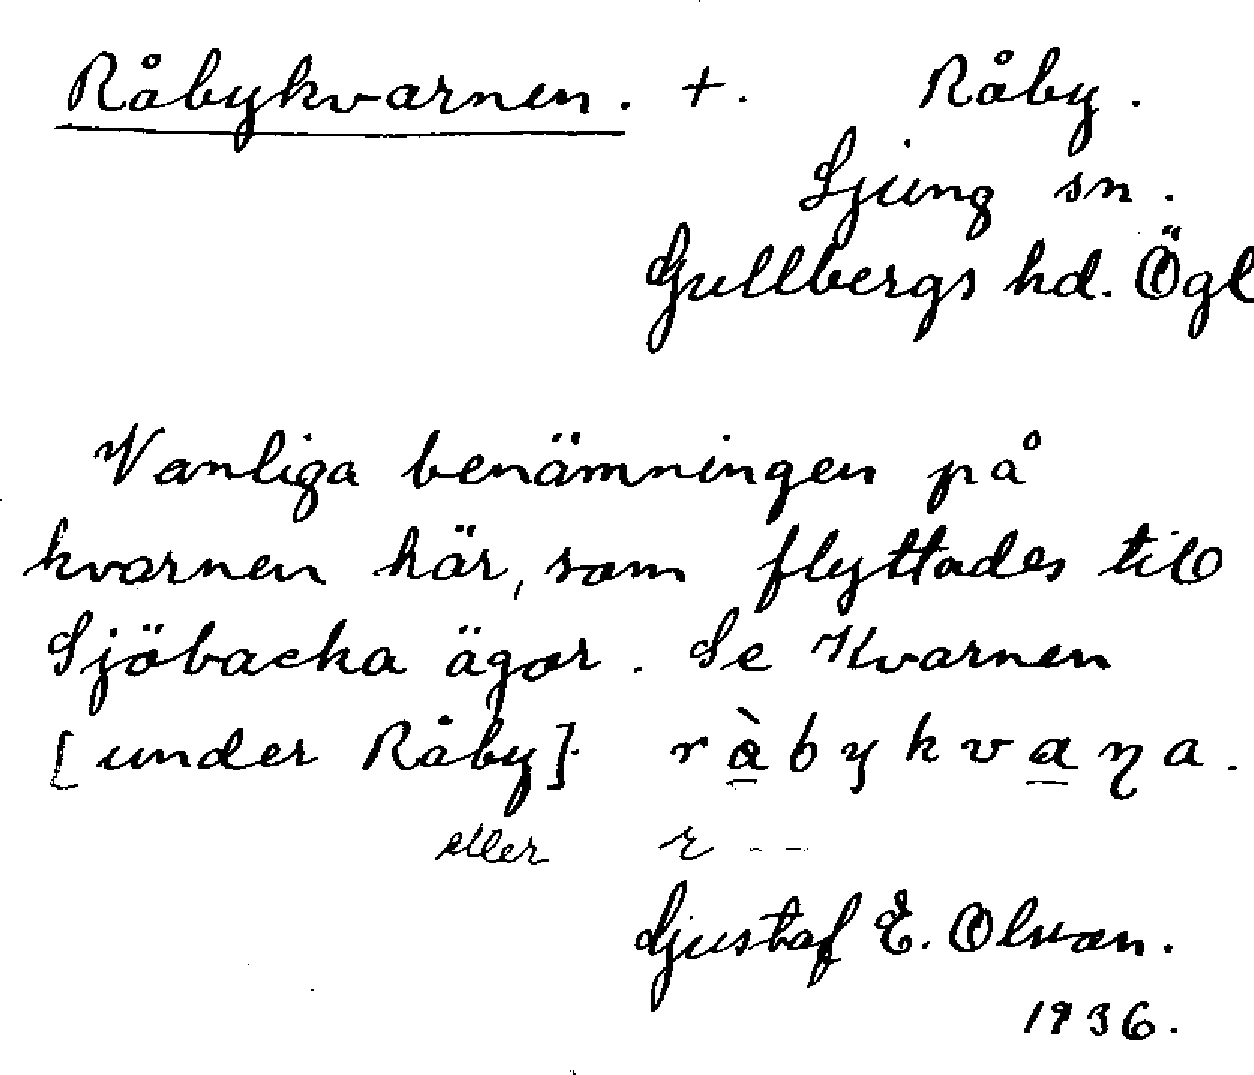 Råbykvarnen. +. Råby.
Ljung sn.
Gullbergs hd. Ögl
Vanliga benämningen på
kvarnen här, som flyttades till
Sjöbacka ägor. Se Kvarnen
[under Råby]. ràbykvaɳa.
eller r - -
Gustaf E. Olsson.
1936.